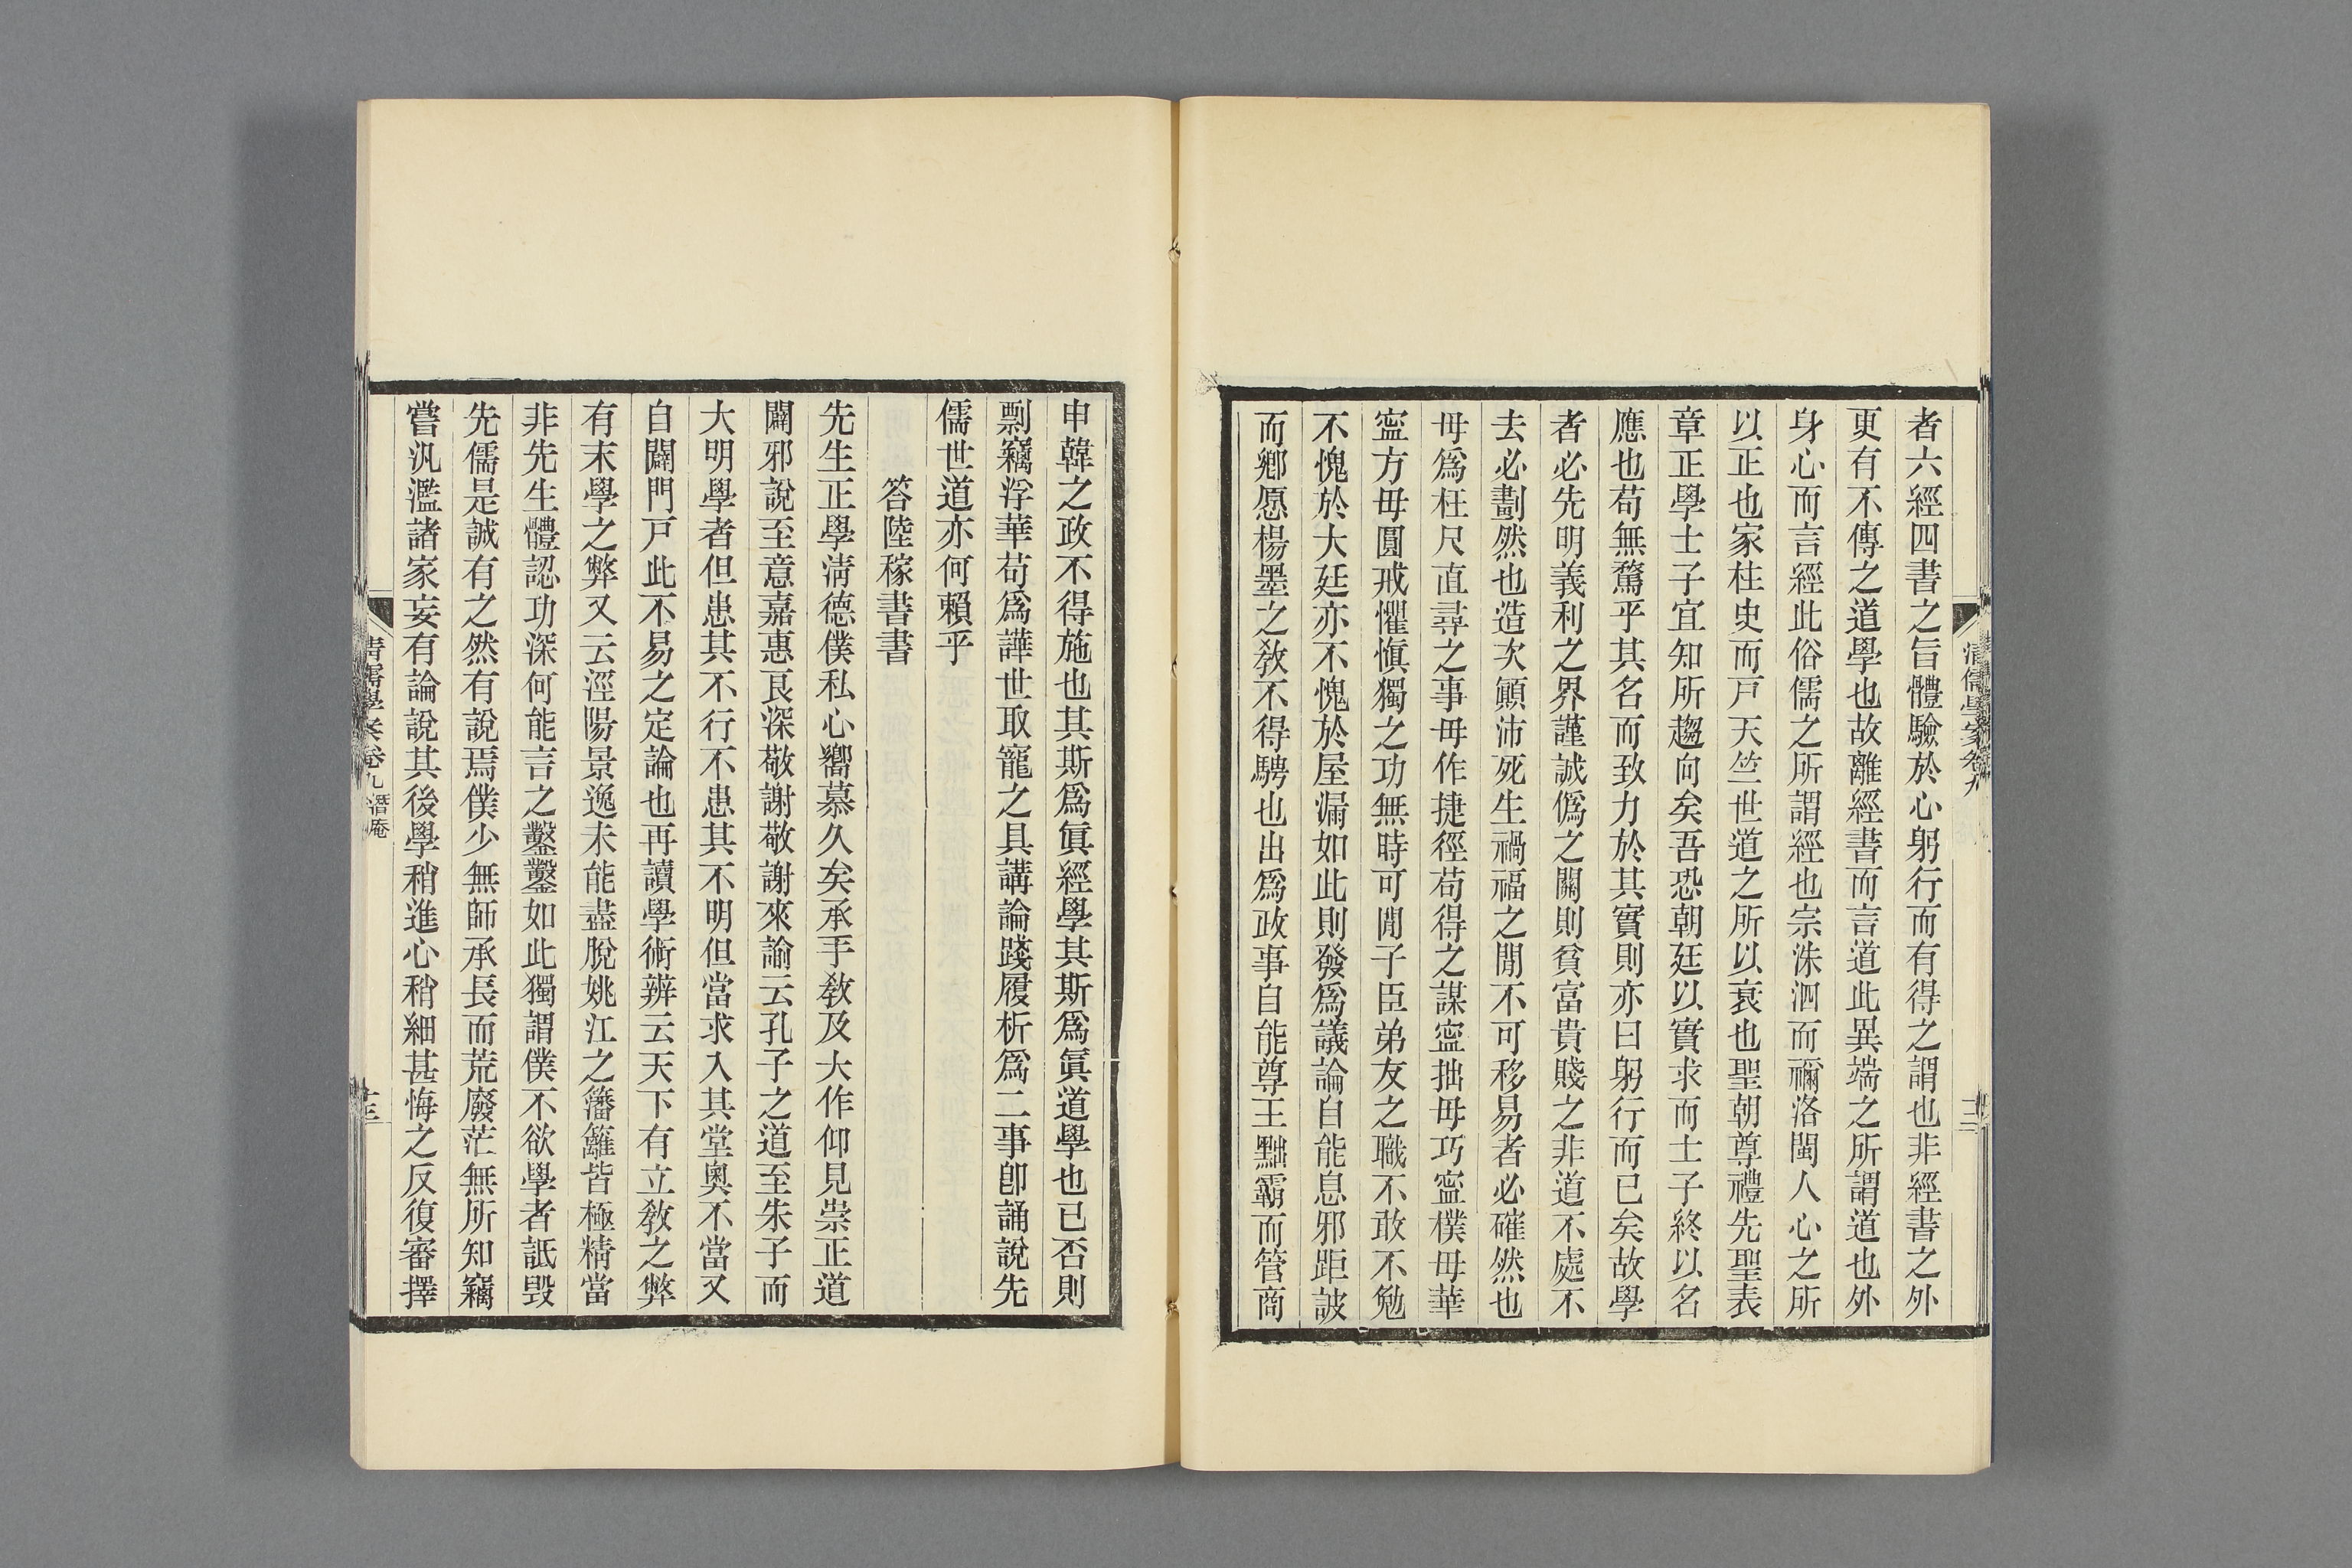 者六經四書之旨體驗於心躬行而有得之謂也非經書之外
更有不傳之道學也故離經書而言道此異端之所謂道也外
身心而言經此俗儒之所謂經也宗洙泗而禰洛閩人心之所
以正也家柱史而戸天竺世道之所以衰也聖朝尊禮先聖表
章正學士子宜知所趨向矣吾恐朝廷以實求而士子終以名
應也苟無騖乎其名而致力於其實則亦曰躬行而已矣故學
者必先明義利之界謹誠僞之關則貧富貴賤之非道不處不
去必劃然也造次顚沛死生禍福之閒不可移易者必確然也
毋爲枉尺直尋之事毋作捷徑苟得之謀寍拙毋巧寍樸毋華
寍方毋圓戒懼愼獨之功無時可閒子臣弟友之職不敢不勉
不愧於大廷亦不愧於屋漏如此則發爲議論自能息邪距詖
而鄉愿楊墨之敎不得騁也出爲政事自能尊王黜霸而管商
申韓之政不得施也其斯爲眞經學其斯爲眞道學也已否則
剽竊浮華苟爲譁世取寵之具講論踐履析爲二事卽誦說先
儒世道亦何賴乎
答陸稼書書
先生正學淸德僕私心嚮慕久矣承手敎及大作仰見崇正道
闢邪說至意嘉惠良深敬謝敬謝來諭云孔子之道至朱子而
大明學者但患其不行不患其不明但當求入其堂奧不當又
自闢門戸此不易之定論也再讀學術辨云天下有立敎之弊
有末學之弊又云涇陽景逸未能盡脫姚江之籓籬皆極精當
非先生體認功深何能言之鑿鑿如此獨謂僕不欲學者詆毀
先儒是誠有之然有說焉僕少無師承長而荒廢茫無所知竊
嘗汎濫諸家妄有論說其後學稍進心稍細甚悔之反復審擇
清儒學案卷九 潛庵